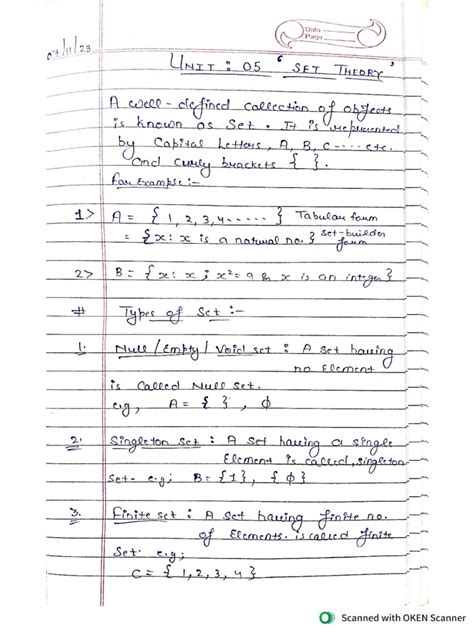 Date
Page
07/11/23
UNIT : 05 ' SET THEORY '
A well-defined collection of objects
is known as Set. It is represented
by Capital Letters, A, B, C ---- etc.
and curly brackets { }.
For Example :-
1> A = { 1, 2, 3, 4 ----- } Tabular form
= {x: x is a natural no.} set-builder form
2> B = {x: x ; x²=9 & x is an integer}
# Types of Set :-
1. Null / Empty / Void set : A set having
no Element
is called Null Set.
e.g, A = { } , ϕ
2. Singleton set : A set having a single
Element is called, singleton
Set- e.g; B = {1}, {ϕ}
3. Finite set : A set having finite no.
of Elements. is called finite
Set. e.g;
C = { 1, 2, 3, 4 }
Scanned with OKEN Scanner